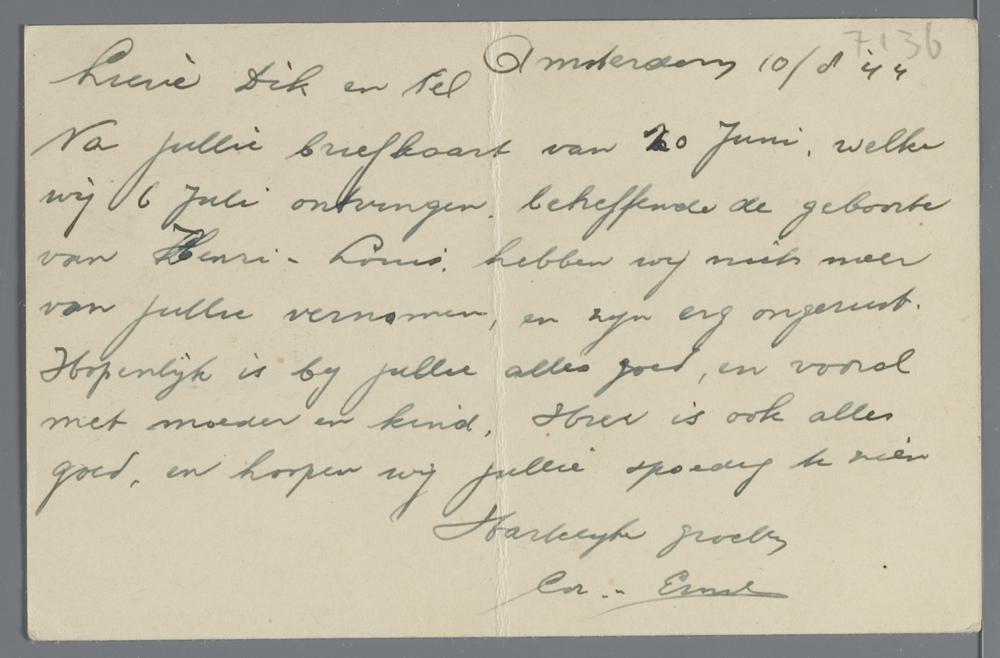 7136
Amsterdam 10/8 '44
Lieve Dik en Nel
Na jullie briefkaart van 20 Juni, welke
wij 6 Juli ontvingen, betreffende de geboorte
van Henri-Louis, hebben wij niets meer
van jullie vernomen, en zijn erg ongerust.
Hopenlijk is bij jullie alles goed, en vooral
met moeder en kind. Hier is ook alles
goed, en hoopen wij jullie spoedig te zien
Hartelijke groeten
Cor.. Ernst